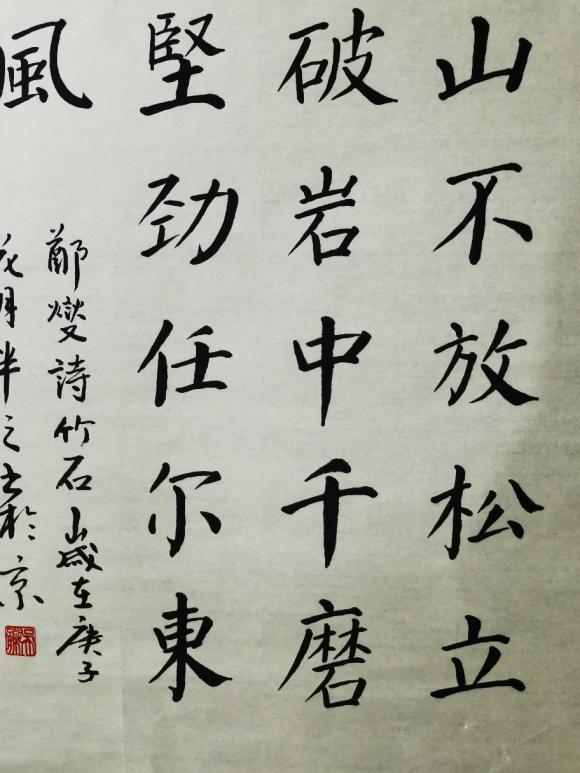 山不放松立
破岩中千磨
堅劲任尔東
風
鄭燮詩竹石歲在庚子
月半之书於京